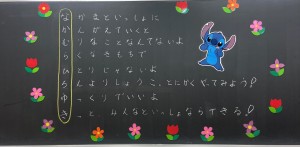 なかまといっしょに
かんがえていくと
むりなことなんてないよ
らくなきもちで
ひとりじゃないよ
ろんよりしょうこ、とにかくやってみよう!
ゆっくりでいいよ
きっと、みんなといっしょならできる!